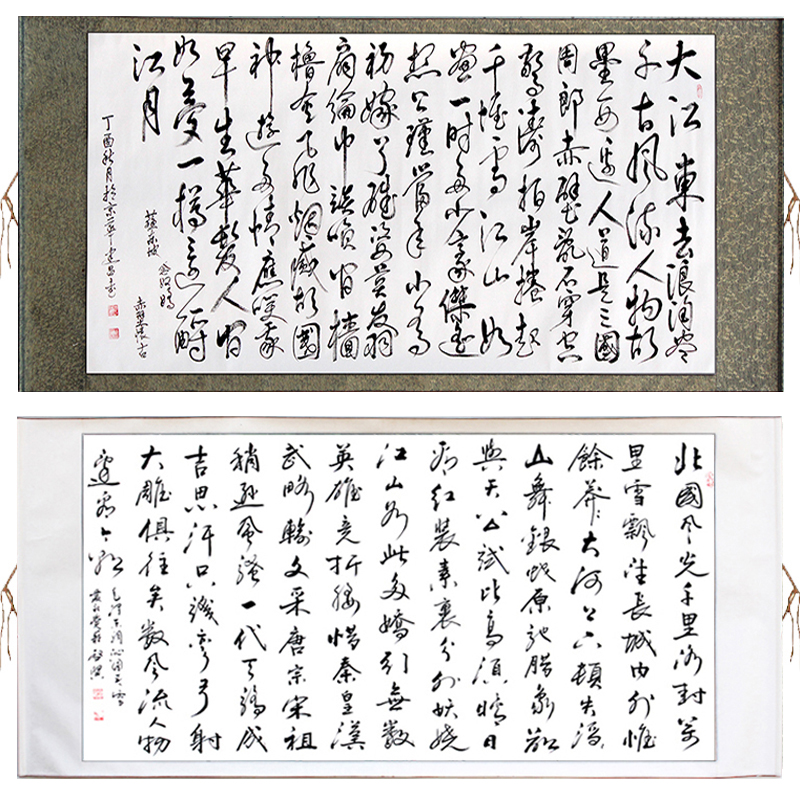 大江東去浪淘尽
千古風流人物故
壘西邊人道是三國
周郎赤壁亂石穿空
驚濤拍岸捲起
千堆雪江山如
畫一時多少豪傑遙
想公瑾當年小喬
初嫁了雄姿英發羽
扇綸巾談笑間檣
櫓灰飛煙滅故國
神遊多情應笑我
早生華髮人間
如夢一樽還酹
江月
赤壁懷古
蘇東坡 念奴嬌
丁酉秋月於京華建昌書
北國风光千里冰封萬
里雪飄望長城内外惟
餘莽莽大河上下頓失滔滔
山舞銀蛇原馳腊象欲
與天公試比高須晴日
看紅裝素裹分外妖嬈
江山如此多嬌引無數
英雄竞折腰惜秦皇漢
武略輸文采唐宗宋祖
稍遜风騷一代天驕成
吉思汗只識彎弓射
大雕俱往矣數风流人物
還看今朝
毛澤東詞沁園春雪